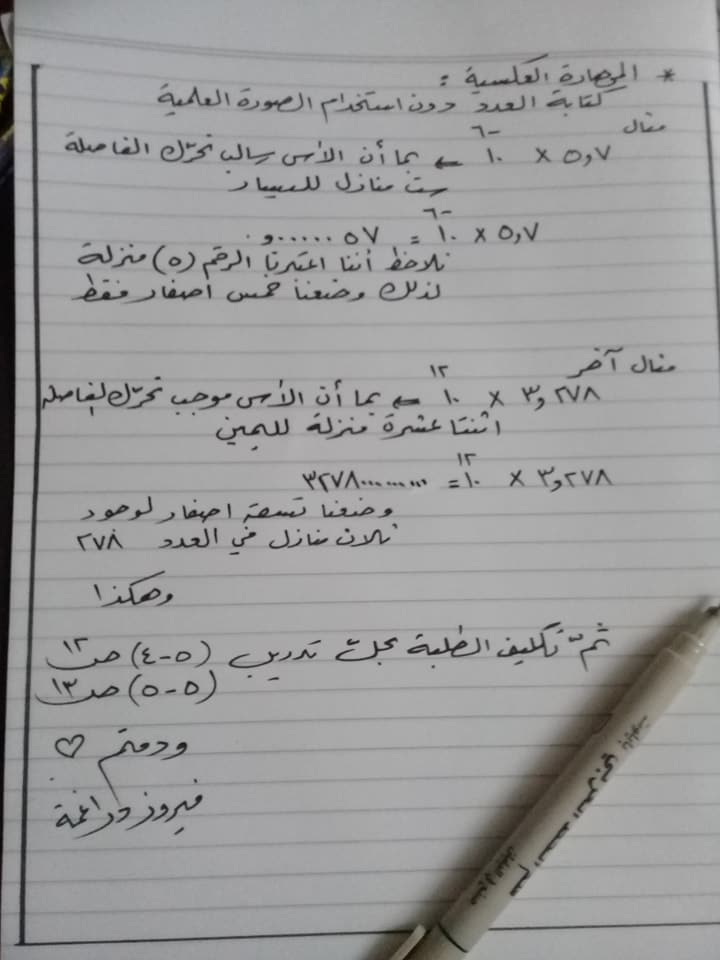 * المهارة العكسية :
كتابة العدد دون استخدام الصورة العلمية
مثال
٥,٧ × ١٠^-٦ ← بما أن الأس سالب نحرّك الفاصلة
ست منازل لليسار
٥,٧ × ١٠^-٦ = ٠,٠٠٠٠٠٥٧
نلاحظ أننا اعتبرنا الرقم (٥) منزلة
لذلك وضعنا خمس اصفار فقط
مثال آخر
٣,٢٧٨ × ١٠^١٢ ← بما أن الأس موجب نحرّك الفاصلة
اثنتا عشرة منزلة لليمين
٣,٢٧٨ × ١٠^١٢ = ٣٢٧٨٠٠٠٠٠٠٠٠٠
وضعنا تسعة اصفار لوجود
ثلاث منازل في العدد ٢٧٨
وهكذا
ثمّ تكليف الطلبة بحلّ تدريب (٥-٤) ص١٢
(٥-٥) ص١٣
ودمتم ♡
فيروز دراغمة